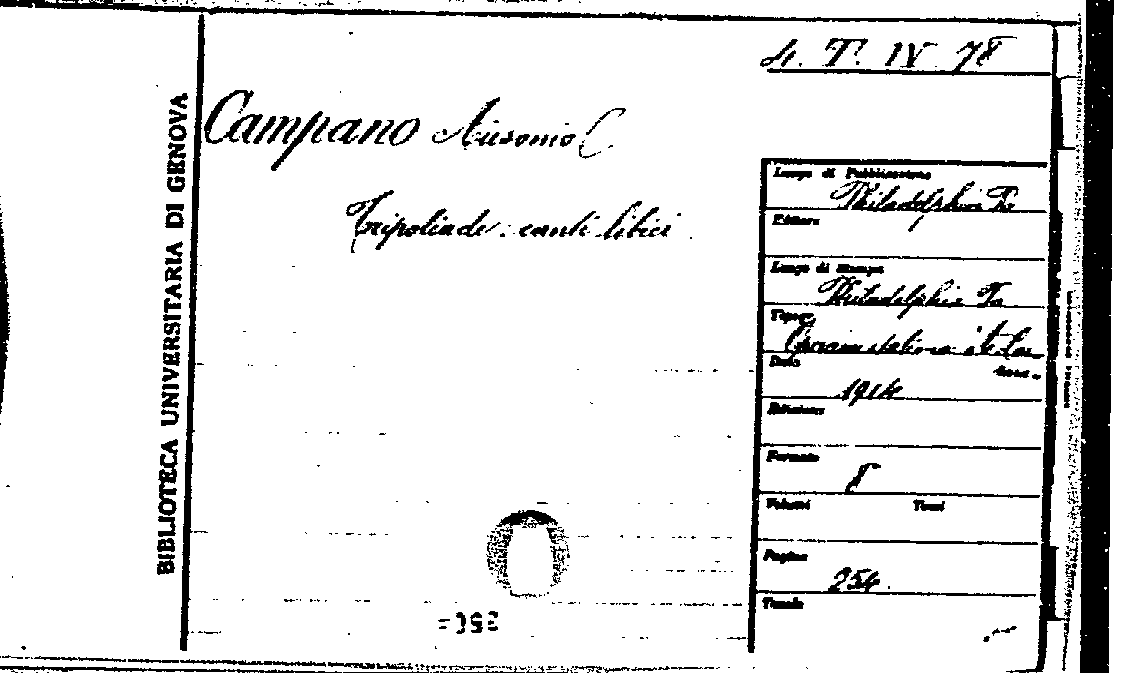 4. T. IV. 78
BIBLIOTECA UNIVERSITARIA DI GENOVA
Campano Ausonio C.
Tripoliade: canti libici
Luogo di Pubblicazione
Philadelphia Pa
Editore
Luogo di Stampa
Philadelphia Pa
Tipogr.
Data
1914
Edizione
Formato
8
Volumi Tomi
Pagine
254
Tavole